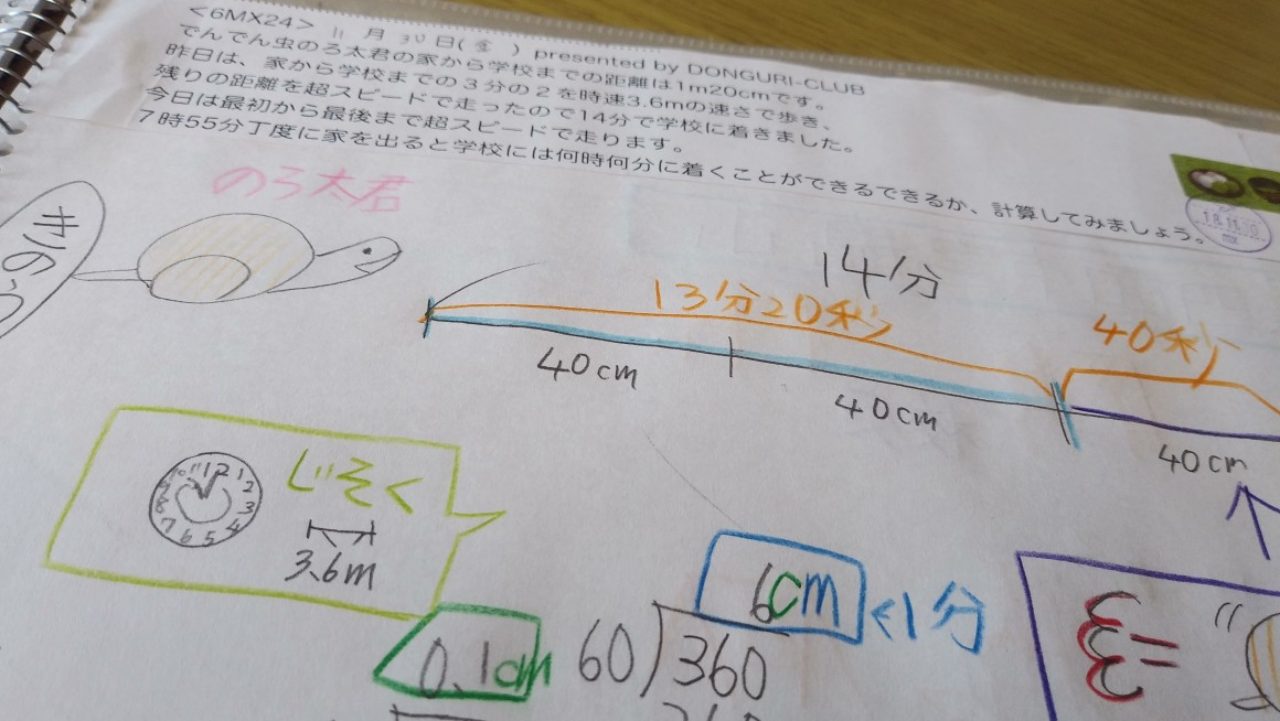 <6MX24> 11月30日(金) presented by DONGURI-CLUB
でんでん虫のろ太君の家から学校までの距離は1m20cmです。
昨日は、家から学校までの3分の2を時速3.6mの速さで歩き、
残りの距離を超スピードで走ったので14分で学校に着きました。
今日は最初から最後まで超スピードで走ります。
7時55分丁度に家を出ると学校には何時何分に着くことができるできるか、計算してみましょう。
のろ太君
きのう
14分
13分20秒
40秒
40cm
40cm
40cm
じそく
12 1 2 3 4 5 6 7 8 9 10 11
3.6m
6cm <1分
0.1cm 60)360